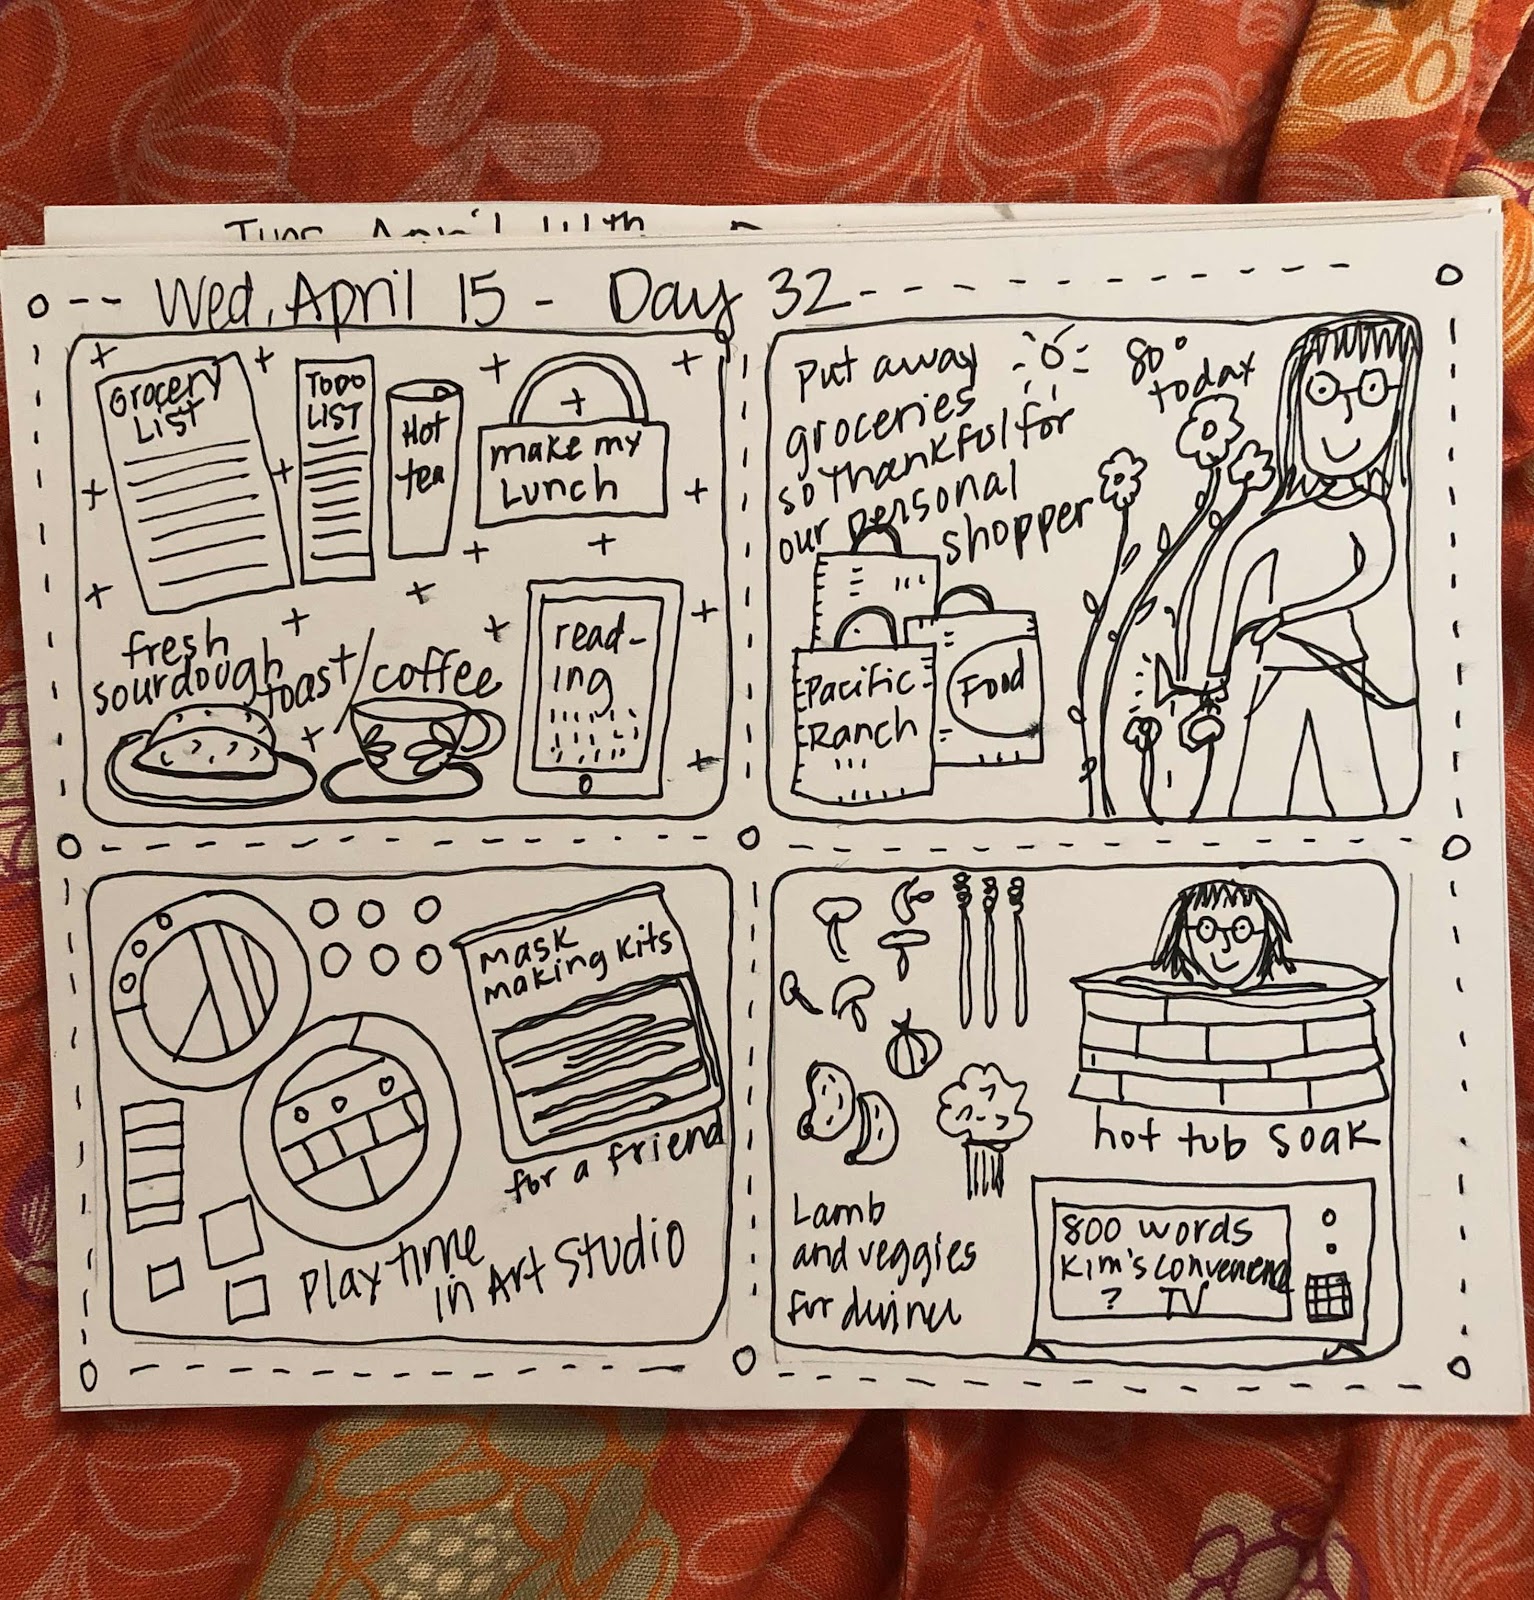 Tues April 14th
Wed, April 15 - Day 32
Grocery
List
Todo
List
Hot
tea
make my
Lunch
fresh
sourdough
toast/coffee
read-
ing
put away
groceries
so thankful for
our personal
shopper
80°
today
Pacific
Ranch
Food
mask
making kits
for a friend
Play time
in Art Studio
hot tub soak
Lamb
and veggies
for dinner
800 words
Kim's convenience
? TV